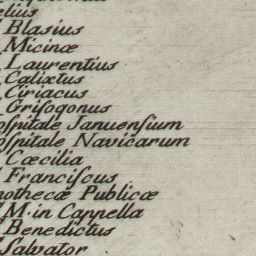 elius
Blasius
Micinæ
Laurentius
Calixtus
Ciriacus
Griſogonus
oſpitale Januenſium
oſpitale Navicarum
Cæcilia
Franciſcus
othecæ Publicæ
M. in Cappella
Benedictus
Salvator